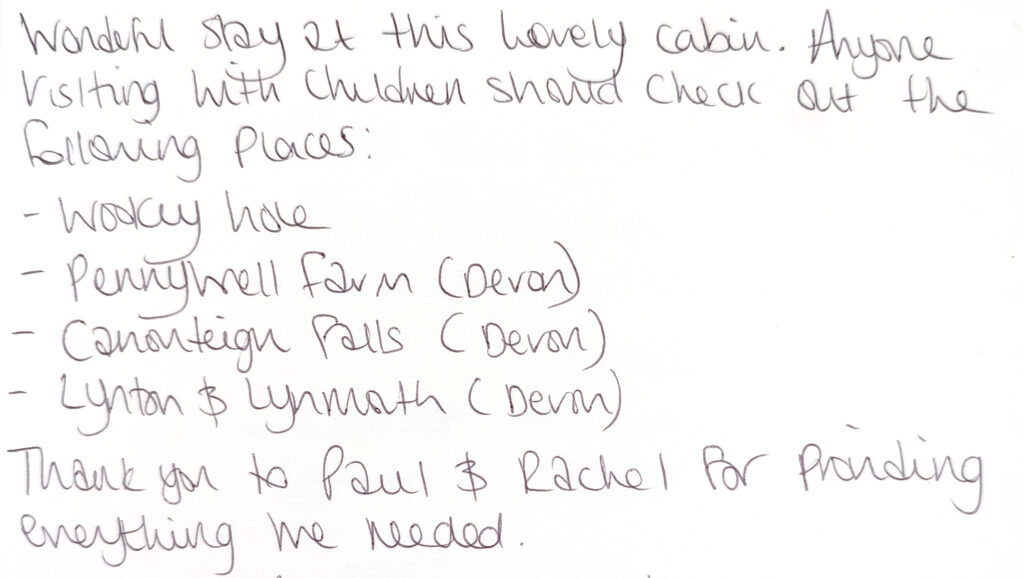 Wonderful stay at this lovely cabin. Anyone
visiting with children should check out the
following places:
- Wookey hole
- Pennywell Farm (Devon)
- Canonteign Falls (Devon)
- Lynton & Lynmoth (Devon)
Thank you to Paul & Rachel for providing
everything we needed.